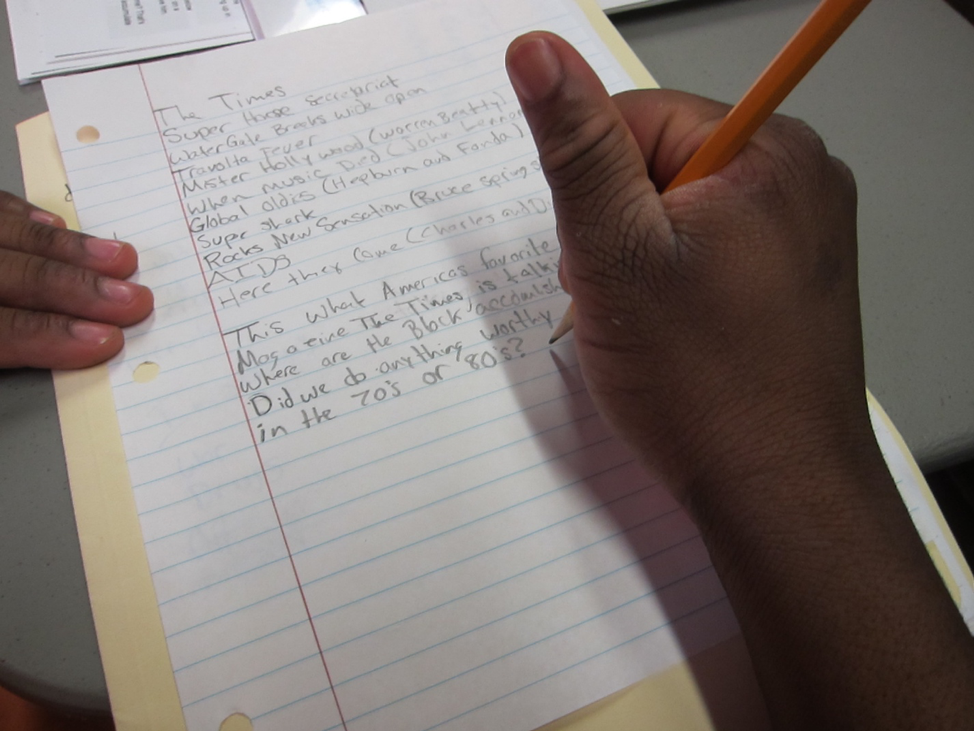 The Times
Super Horse Secretariat
WaterGate Breaks wide open
Travolta Fever
Mister Hollywood (Warren Beatty)
When music Died (John Lennon
Global oldies (Hepburn and Fonda)
Super shark
Rocks New Sensation (Bruce Springs
AIDS
Here they Come (Charles and Di
This what Americas favorite
Magazine The Times, is talki
Where are the Black accomlish
Did we do anything worthy
in the 70's or 80's?